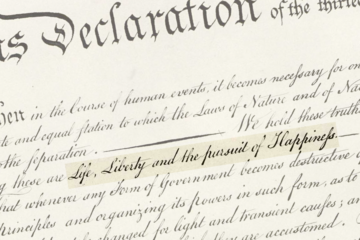 as Declaration of the thirte
hen in the Course of human events, it becomes necessary for on
te and equal station to which the Laws of Nature and of Na
the separation. We hold these truths
g these are Life, Liberty and the pursuit of Happiness
hat whenever any Form of Government becomes destructive o
rinciples and organizing its powers in such form, as to
changed for light and transient causes; an
they are accustomed.